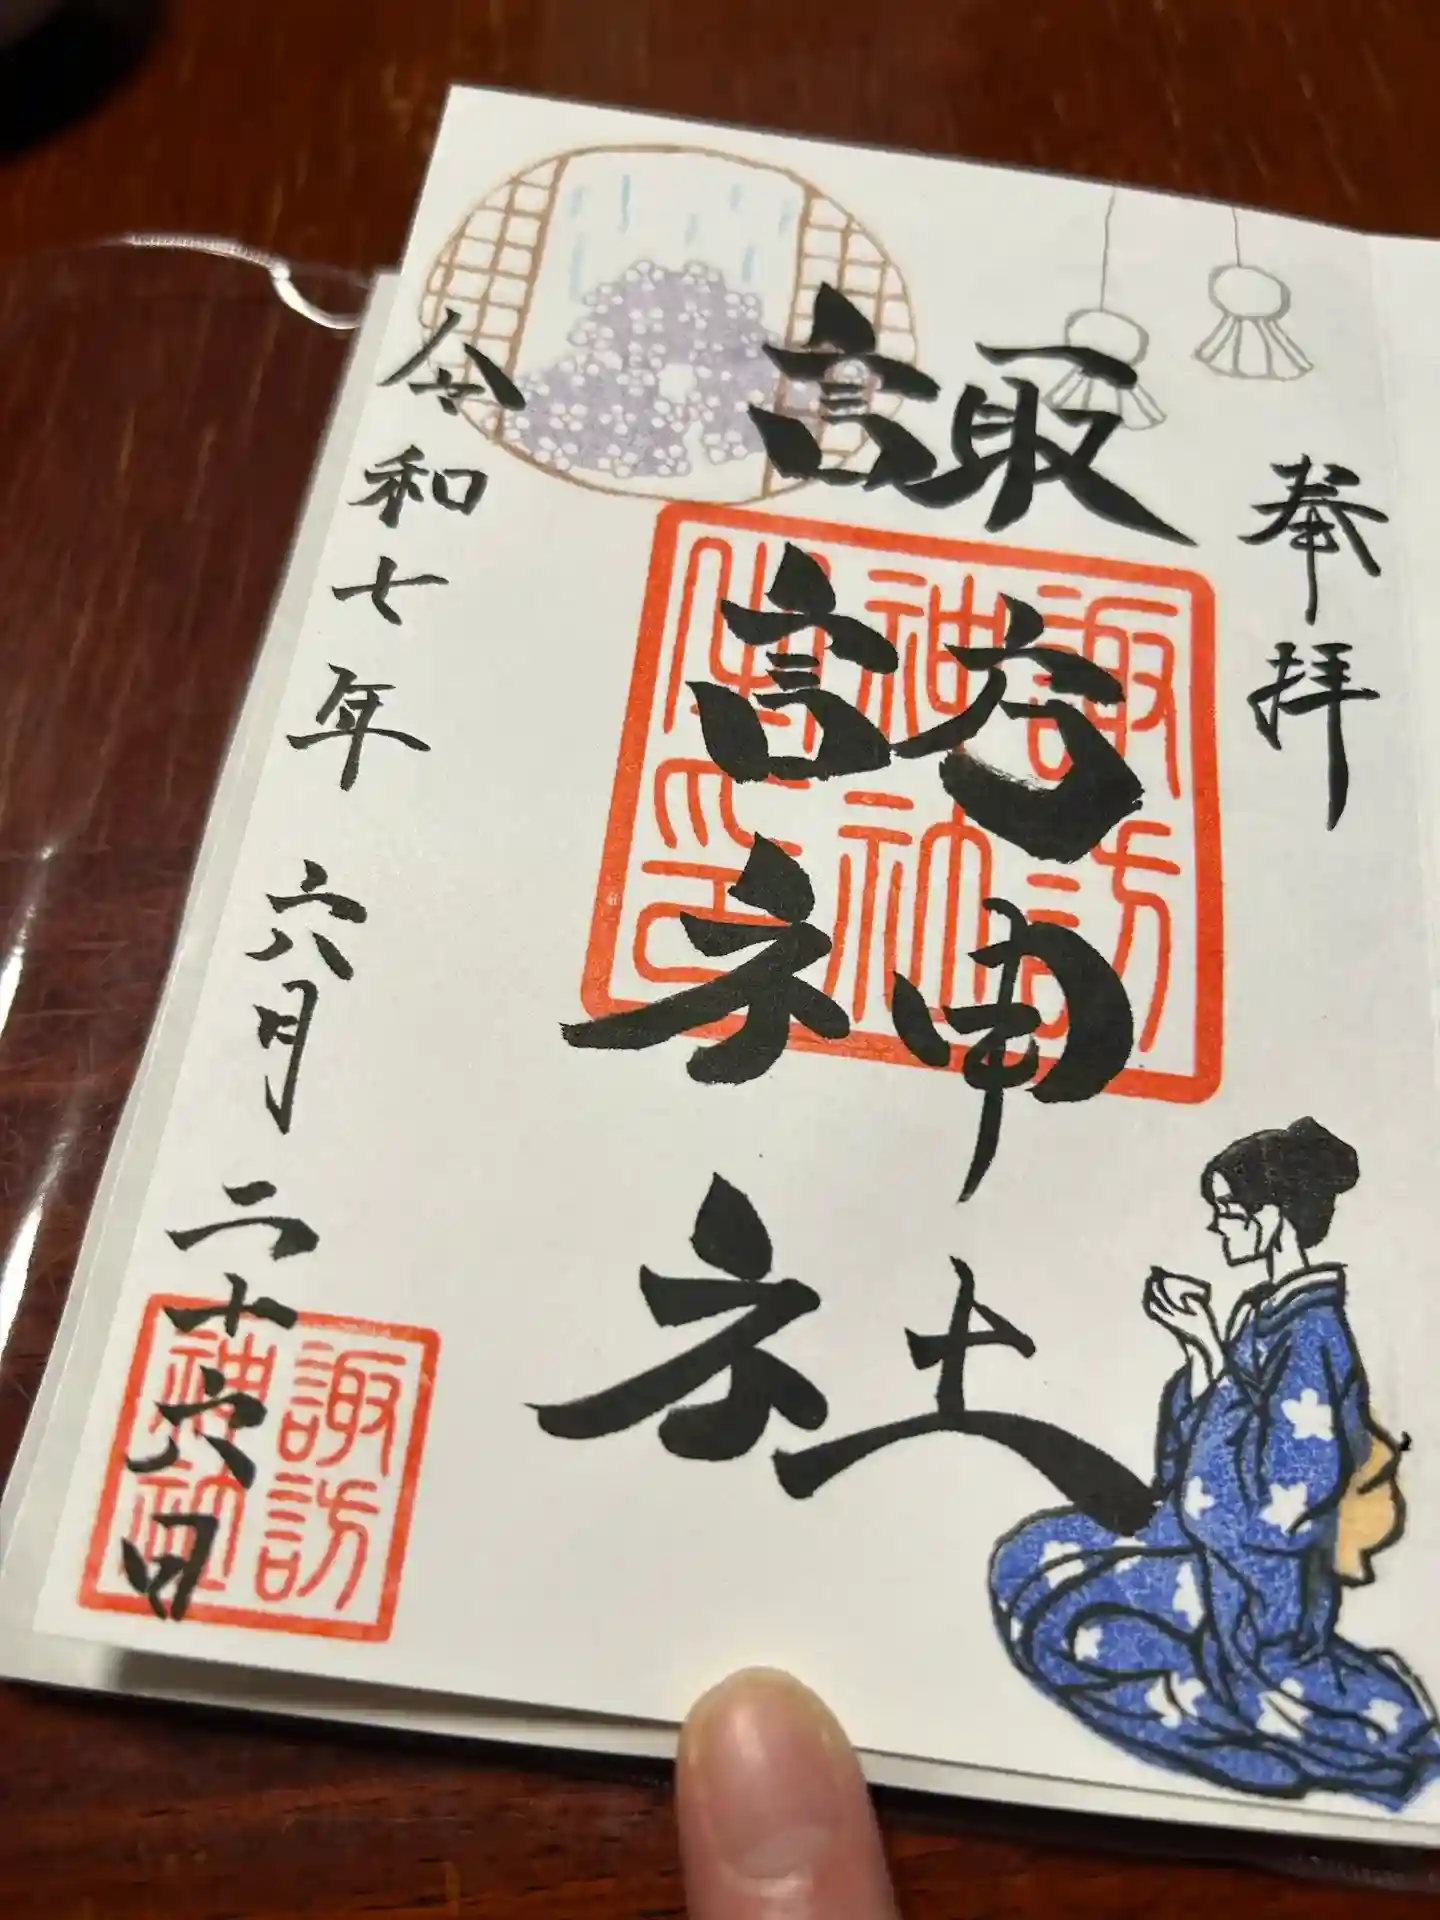 奉拝
諏訪神社
諏訪
神社
令和七年 六月 二十六日
諏訪
神社